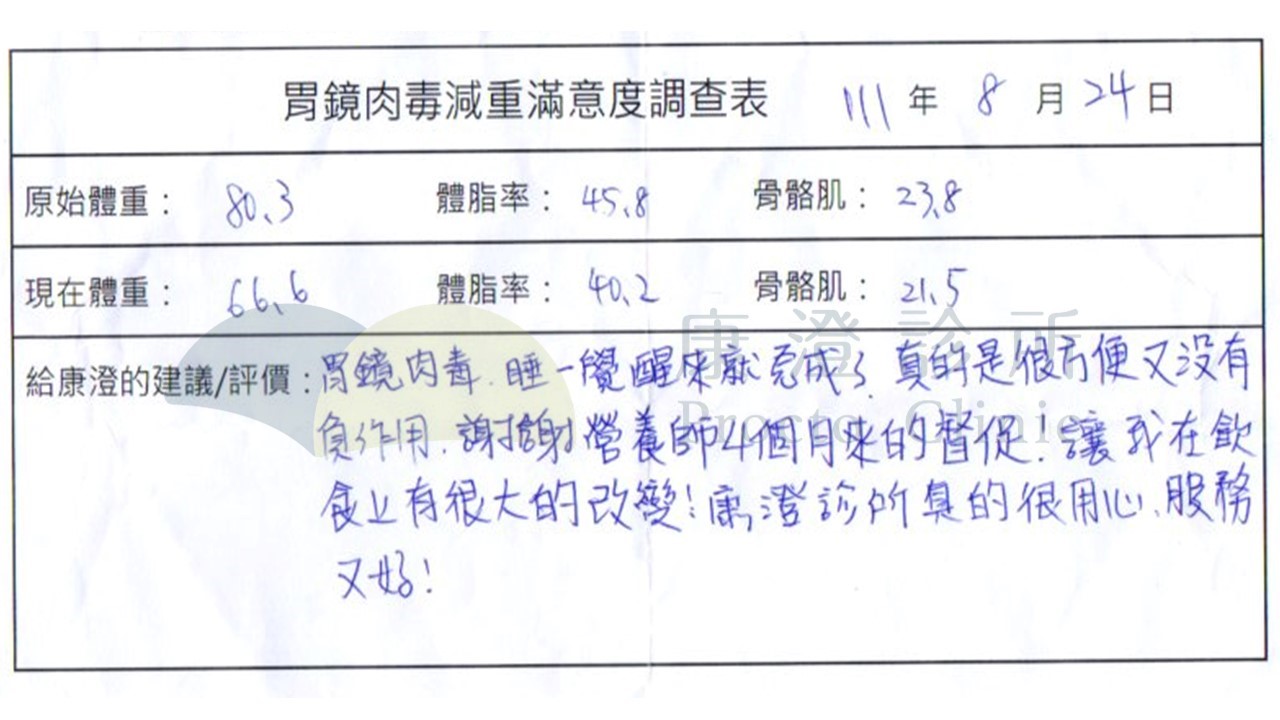 胃鏡肉毒減重滿意度調查表 111 年 8 月 24 日
原始體重： 80.3 體脂率： 45.8 骨骼肌： 23.8
現在體重： 66.6 體脂率： 40.2 骨骼肌： 21.5
康澄診所
Procto Clinic
給康澄的建議/評價：胃鏡肉毒.睡一覺醒來就完成了.真的是很方便又沒有
負作用.謝謝營養師4個月來的督促！讓我在飲
食上有很大的改變！康澄診所真的很用心、服務
又好！